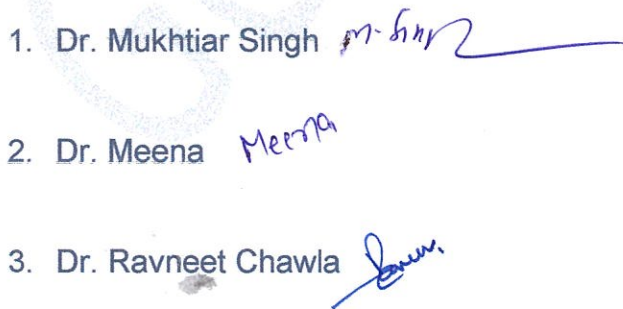 1. Dr. Mukhtiar Singh M. Singh
2. Dr. Meena Meena
3. Dr. Ravneet Chawla